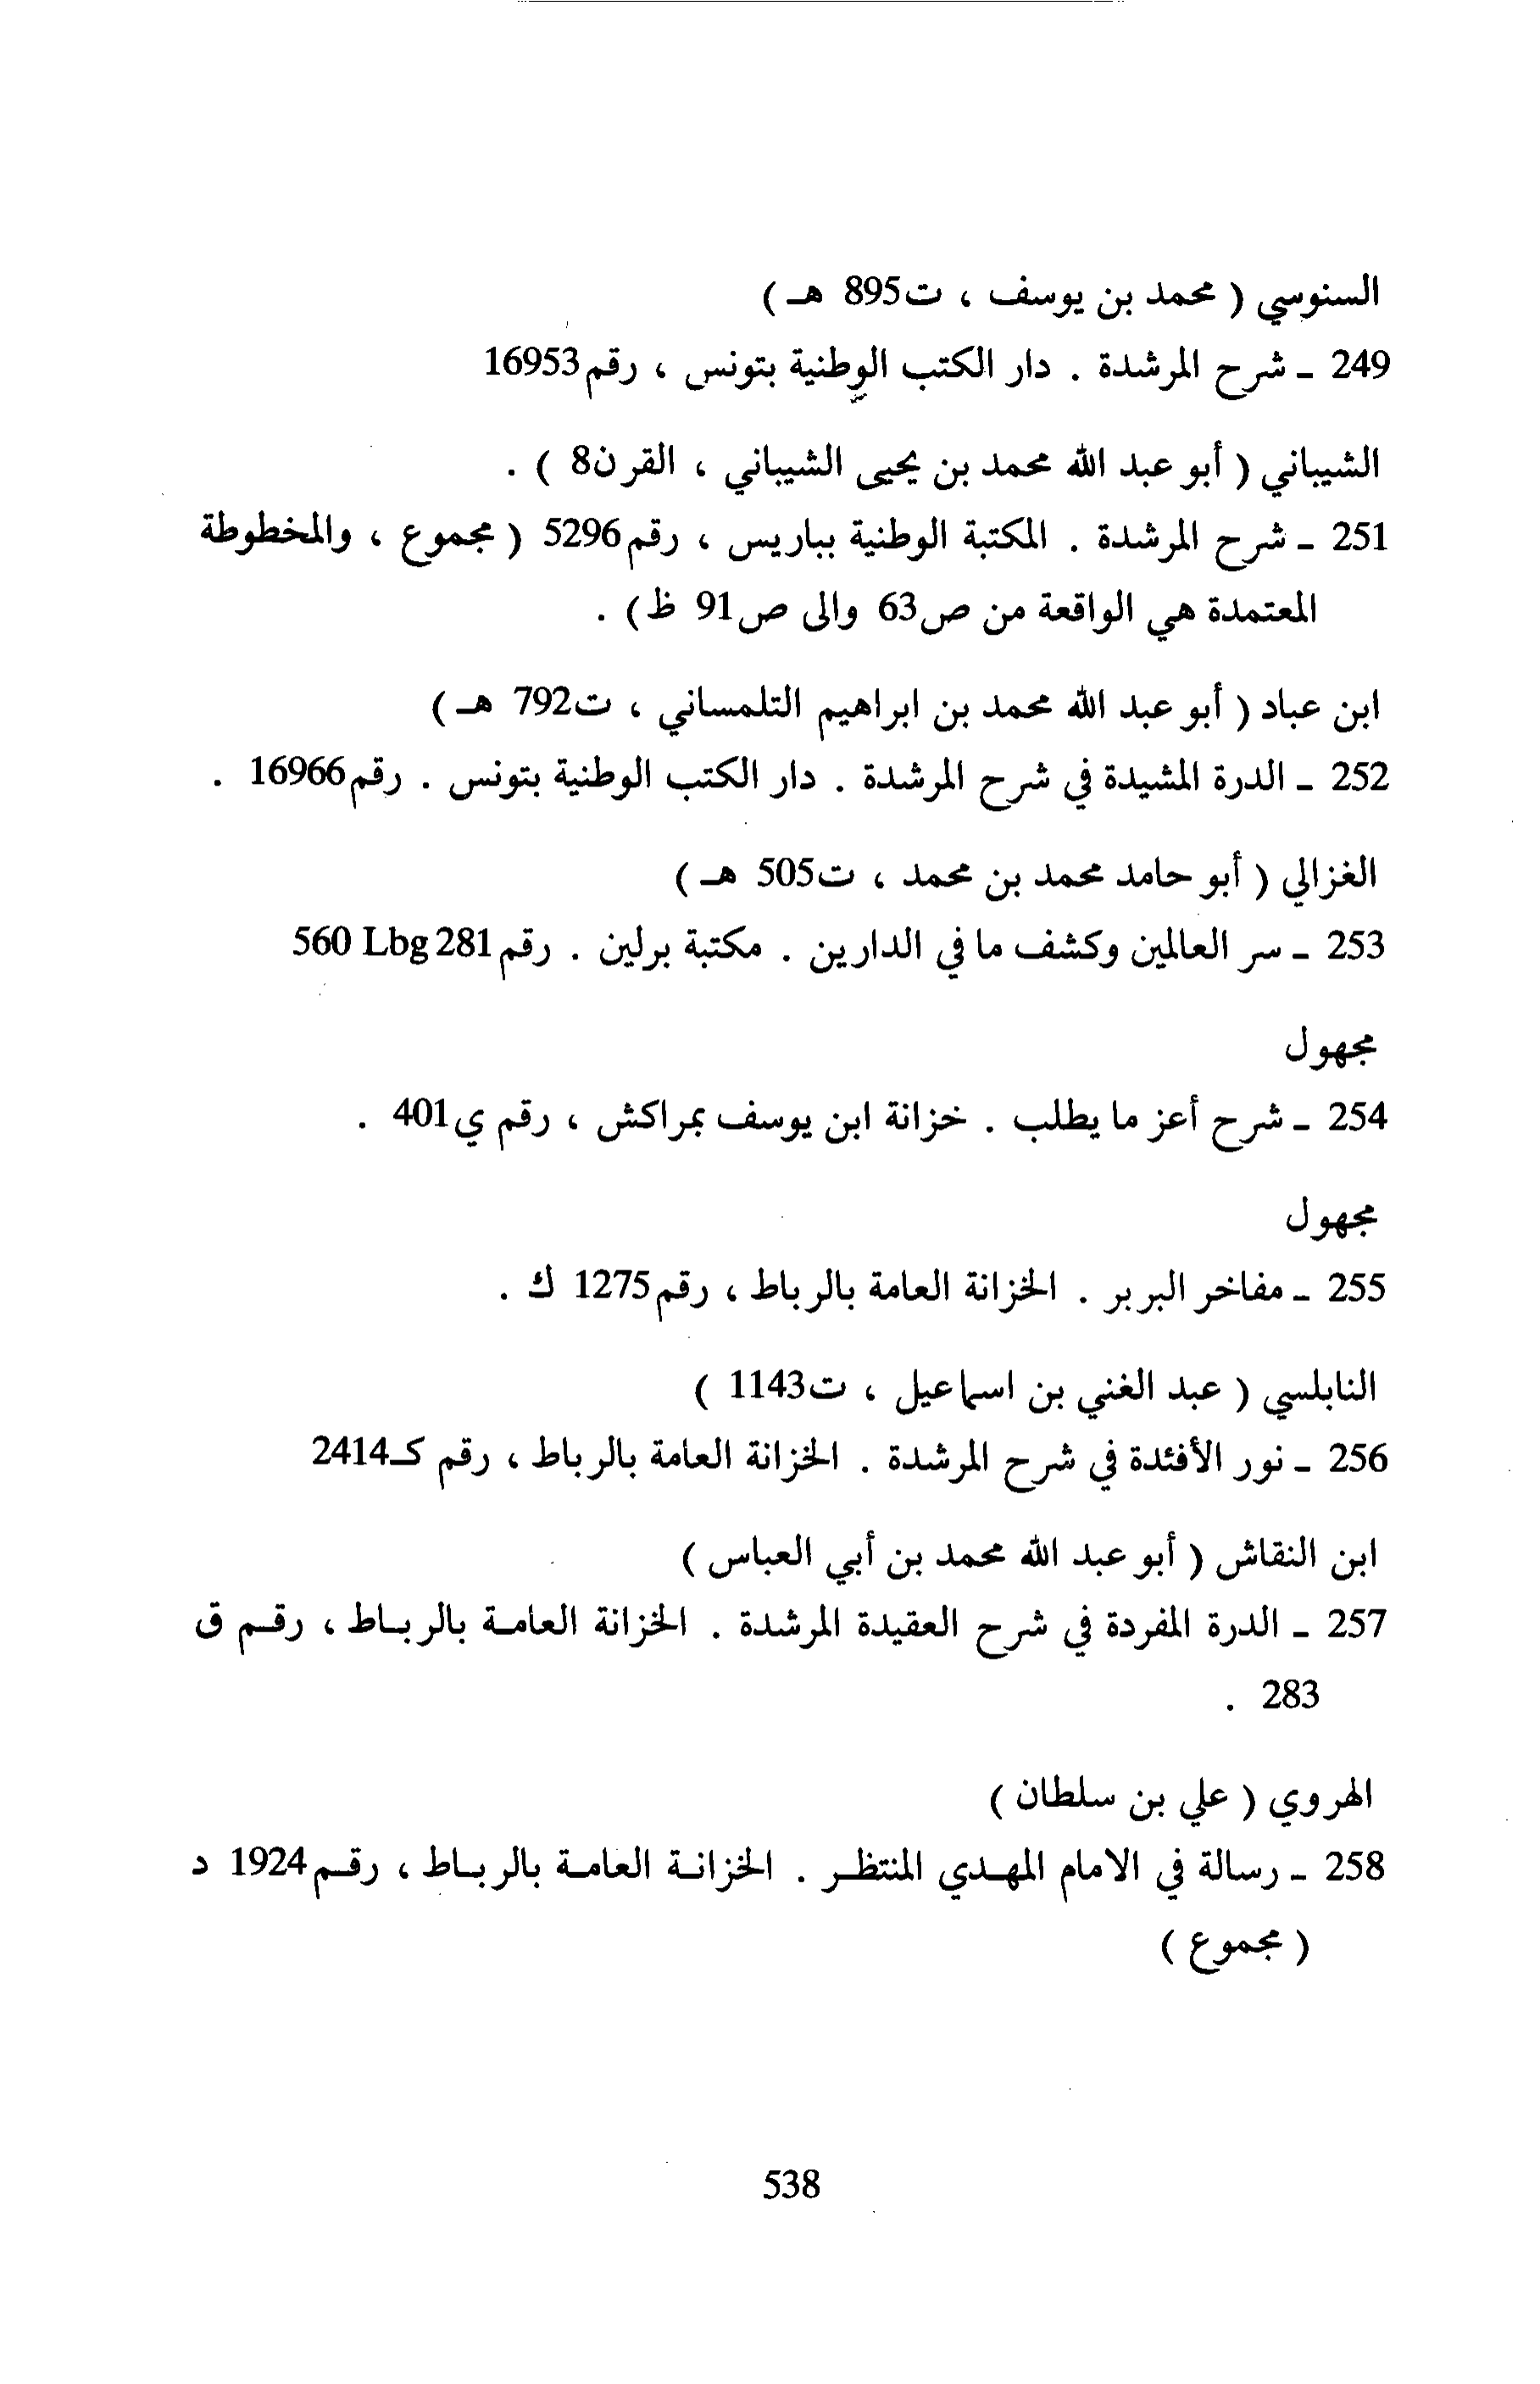 السنوسي ( محمد بن يوسف ، ت895 هـ )
249 ـ شرح المرشدة . دار الكتب الوطنية بتونس ، رقم16953
الشيباني ( أبو عبد الله محمد بن يحيى الشيباني ، القرن8 ) .
251 ـ شرح المرشدة . المكتبة الوطنية بباريس ، رقم5296 ( مجموع ، والمخطوطة
المعتمدة هي الواقعة من ص63 والى ص91 ظ ) .
ابن عباد ( أبو عبد الله محمد بن ابراهيم التلمساني ، ت792 هـ )
252 ـ الدرة المشيدة في شرح المرشدة . دار الكتب الوطنية بتونس . رقم16966 .
الغزالي ( أبو حامد محمد بن محمد ، ت505 هـ )
253 ـ سر العالمين وكشف ما في الدارين . مكتبة برلين . رقم560 Lbg 281
مجهول
254 ـ شرح أعز ما يطلب . خزانة ابن يوسف بمراكش ، رقم ي401 .
مجهول
255 ـ مفاخر البربر . الخزانة العامة بالرباط ، رقم1275 ك .
النابلسي ( عبد الغني بن اسماعيل ، ت1143 )
256 ـ نور الأفئدة في شرح المرشدة . الخزانة العامة بالرباط ، رقم كـ2414
ابن النقاش ( أبو عبد الله محمد بن أبي العباس )
257 ـ الدرة المفردة في شرح العقيدة المرشدة . الخزانة العامـة بالربـاط ، رقـم ق
283 .
الهروي ( علي بن سلطان )
258 ـ رسالة في الامام المهـدي المنتظـر . الخزانـة العامـة بالربـاط ، رقـم1924 د
( مجموع )
538